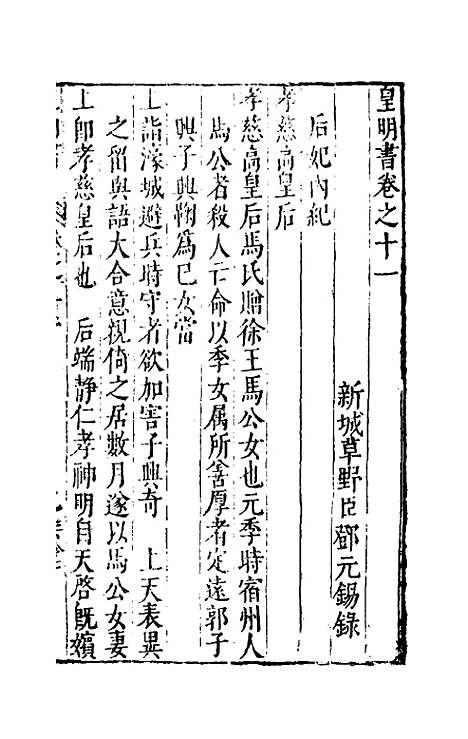 皇明書卷之十一
新城草野臣鄧元錫錄
后妃內紀
孝慈高皇后
孝慈高皇后馬氏贈徐王馬公女也元季時宿州人
馬公者殺人亡命以季女属所善厚者定遠郭子
興子興鞠爲已女當
上詣濠城避兵時守者欲加害子興奇 上天表異
之留與語大合意視倚之居數月遂以馬公女妻
上卽孝慈皇后也 后端静仁孝神明自天啓旣嬪